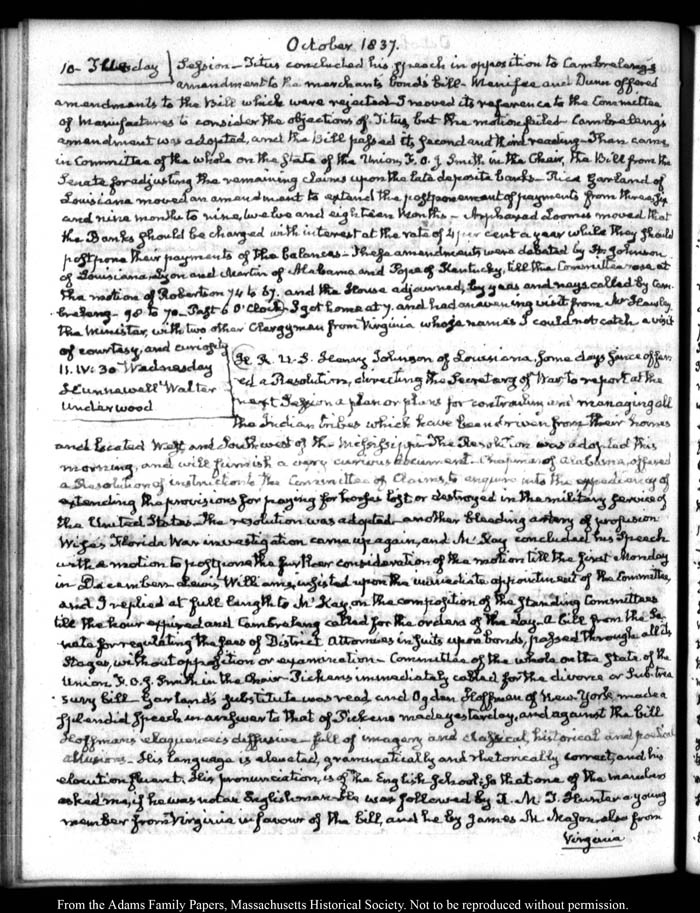 October 1837.
10. Tuesday Session—Titus concluded his speech in opposition to Cambreleng's
amendment to the merchants bonds bill—Menifee and Dunn offered
amendments to the Bill which were rejected I moved its reference to the Committee
of Manufactures to consider the objections of Titus, but the motion failed—Cambreleng's
amendment was adopted, and the Bill passed its second and third reading—Then came,
in Committee of the whole on the State of the Union, F. O. J. Smith in the Chair, the Bill from the
Senate for adjusting the remaining claims upon the late deposite banks—Rice Garland of
Louisiana moved an amendment to extend the postponement of payments from three, six
and nine months to nine, twelve and eighteen Months—Arphaxed Loomis moved that
the Banks should be charged with interest at the rate of 4 per cent a year while they should
postpone their payments of the balances—These amendments were debated by H. Johnson
of Louisiana, Lyon and Martin of Alabama and Pope of Kentucky, till the Committee rose at
the motion of Robertson 74 to 67. and the House adjourned, by yeas and nays called by Cam-
breleng—98 to 70. Past 6 O'Clock—I got home at 7. and had an evening visit from Mr Hawley
the Minister, with two other Clergyman from Virginia whose names I could not catch a visit
of courtesy, and curiosity
11. IV: 30 Wednesday
Hunnewell Walter
Underwood
H. R. U. S. Henry Johnson of Louisiana, some days since offer-
ed a Resolution, directing the Secretary of War, to report at the
next Session a plan or plans for and managing all
the Indian tribes which have been driven from their homes
and located West and Southwest of the Mississippi—The Resolution was adopted this
morning, and will furnish a very curious document—Chapman of Alabama, offered
a Resolution of instruction to the Committee of Claims, to enquire into the expediency of
extending the provisions for paying for horses lost or destroyed in the military service of
the United States—The resolution was adopted—another bleeding artery of profusion
Wise's Florida War investigation came up again, and McKay concluded his Speech
with a motion to postpone the further consideration of the motion till the first Monday
in December—Lewis Williams, insisted upon the immediate appointment of the Committee,
and I replied at full length to McKay, on the composition of the Standing Committees
till the hour expired and Cambreleng called for the orders of the day—A bill from the Se-
nate for regulating the fees of District Attornies in suits upon bonds, passed through all its
Stages, without opposition or examination—Committee of the whole on the State of the
Union F. O. J. Smith in the Chair—Pickens immediately called for the divorce or Sub-trea-
sury bill—Garland's substitute was read and Ogden Hoffman of New York made a
splendid speech in answer to that of Pickens made yesterday, and against the bill
Hoffman's eloquence is diffusive—full of imagery and classical, historical and poetical
allusions—His language is elevated, grammatically and rhetorically correct, and his
elocution fluent. His pronunciation, is of the English School; so that one of the members
asked me, if he was not an Englishman—He was followed by R. M. T. Hunter a young
member from Virginia in favour of the bill, and he by James M. Mason, also from
Virginia
From the Adams Family Papers, Massachusetts Historical Society. Not to be reproduced without permission.